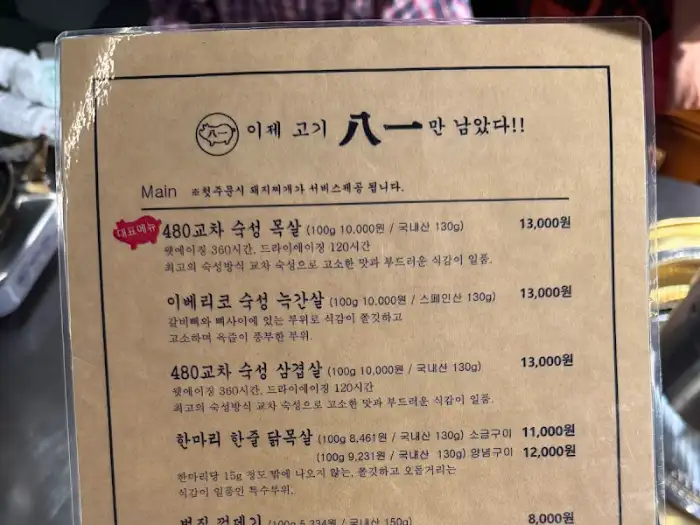 八一 이제 고기 八一만 남았다!!
Main ※첫주문시 돼지찌개가 서비스제공 됩니다.
대표메뉴 480교차 숙성 목살 (100g 10,000원 / 국내산 130g) 13,000원
웻에이징 360시간, 드라이에이징 120시간
최고의 숙성방식 교차 숙성으로 고소한 맛과 부드러운 식감이 일품.
이베리코 숙성 늑간살 (100g 10,000원 / 스페인산 130g) 13,000원
갈비뼈와 뼈사이에 있는 부위로 식감이 쫄깃하고
고소하며 육즙이 풍부한 부위.
480교차 숙성 삼겹살 (100g 10,000원 / 국내산 130g) 13,000원
웻에이징 360시간, 드라이에이징 120시간
최고의 숙성방식 교차 숙성으로 고소한 맛과 부드러운 식감이 일품.
한마리 한줄 닭목살 (100g 8,461원 / 국내산 130g) 소금구이 11,000원
(100g 9,231원 / 국내산 130g) 양념구이 12,000원
한마리당 15g 정도 밖에 나오지 않는, 쫄깃하고 오돌거리는
식감이 일품인 특수부위.
벌집 껍데기 (100g 5,334원 / 국내산 150g) 8,000원